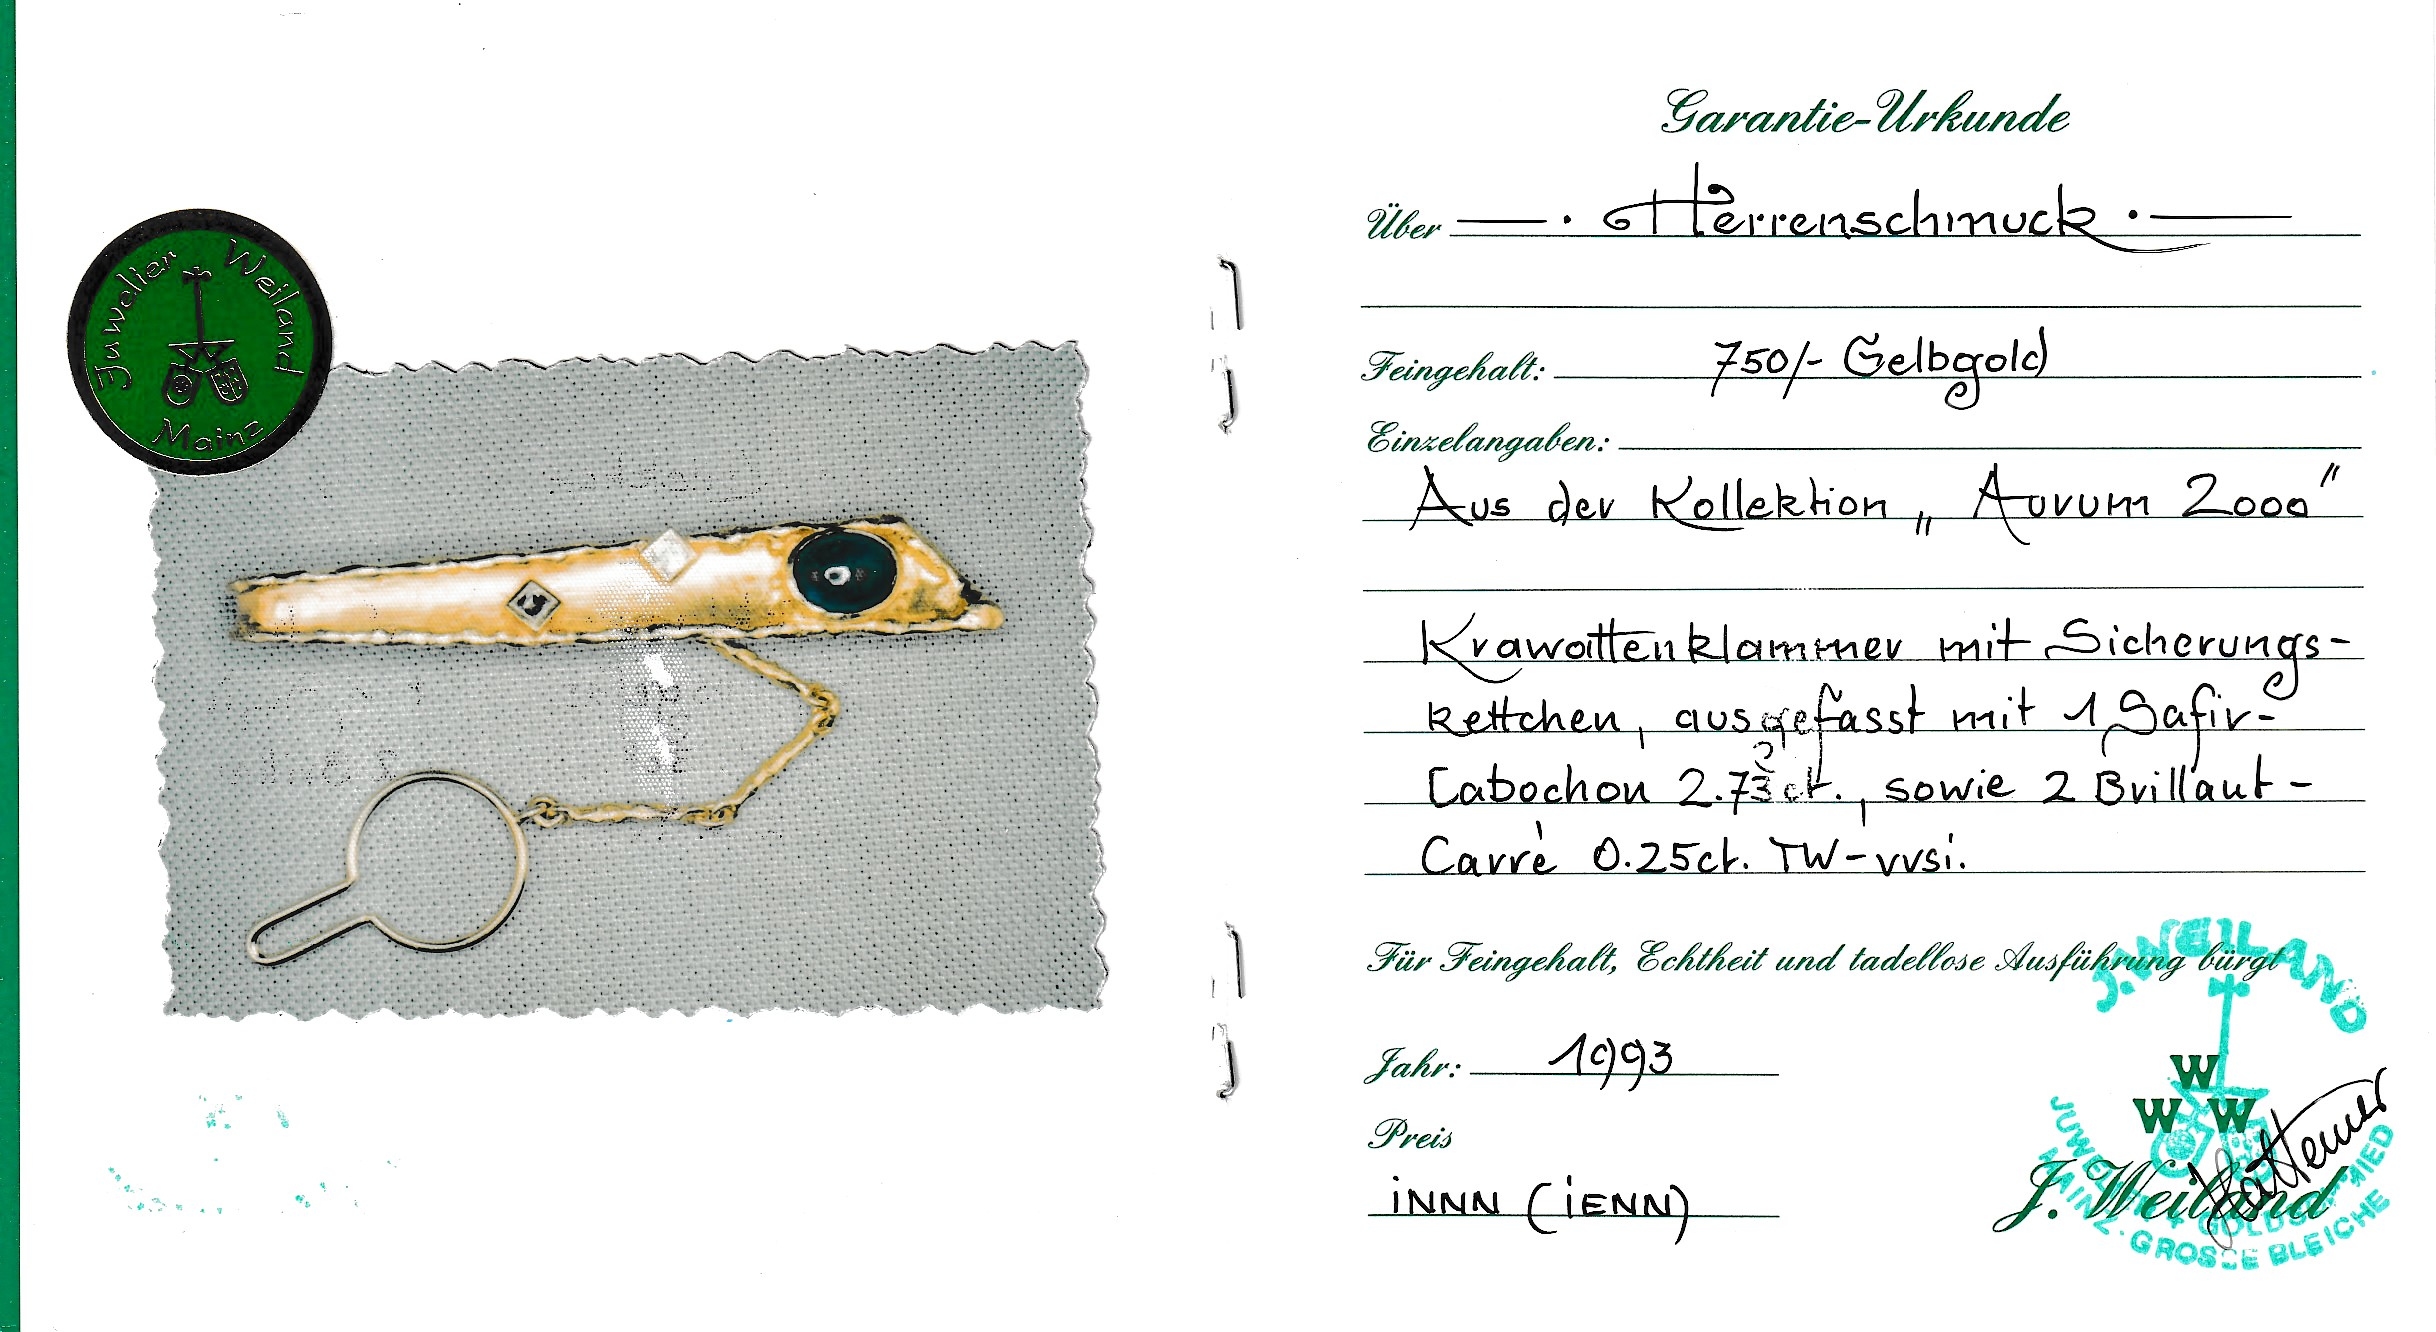 Juwelier Weiland
Mainz
Garantie-Urkunde
Über — . Herrenschmuck . —
Feingehalt: 750/- Gelbgold
Einzelangaben:
Aus der Kollektion „Aurum 2000"
Krawattenklammer mit Sicherungs-
kettchen, ausgefasst mit 1 Safir-
Cabochon 2.73ct., sowie 2 Brillant-
Carrè 0.25ct. TW-vvsi.
Für Feingehalt, Echtheit und tadellose Ausführung bürgt
J. WEILAND
Jahr: 1993
W
W W
Preis
iNNN (iENN)
J. Weiland
JUWELIER + GOLDSCHMIED
MAINZ · GROSSE BLEICHE